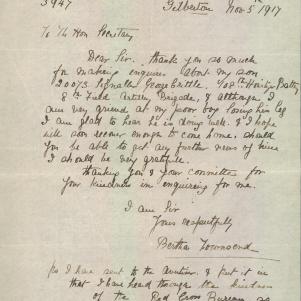 3947
Gilberton Nov 5 1917
To The Hon Secretary
Dear Sir. Thank you so much
for making enquiries about my son
20073 Signaller George Brittle, 108th Howitzer Battery
8th Field Artillery Brigade, & although I
am very grieved at my poor boy losing his leg
I am glad to hear he is doing well & I hope
will soon recover enough to come home. Should
you be able to get any further news of him
I should be very grateful.
Thanking you & your committee for
your kindness in enquiring for me.
I am Sir
Yours respectfully
Bertha Townsend
Ps I have sent to the & put it in
that I have heard through the kindness
of the Red Cross Bureau as